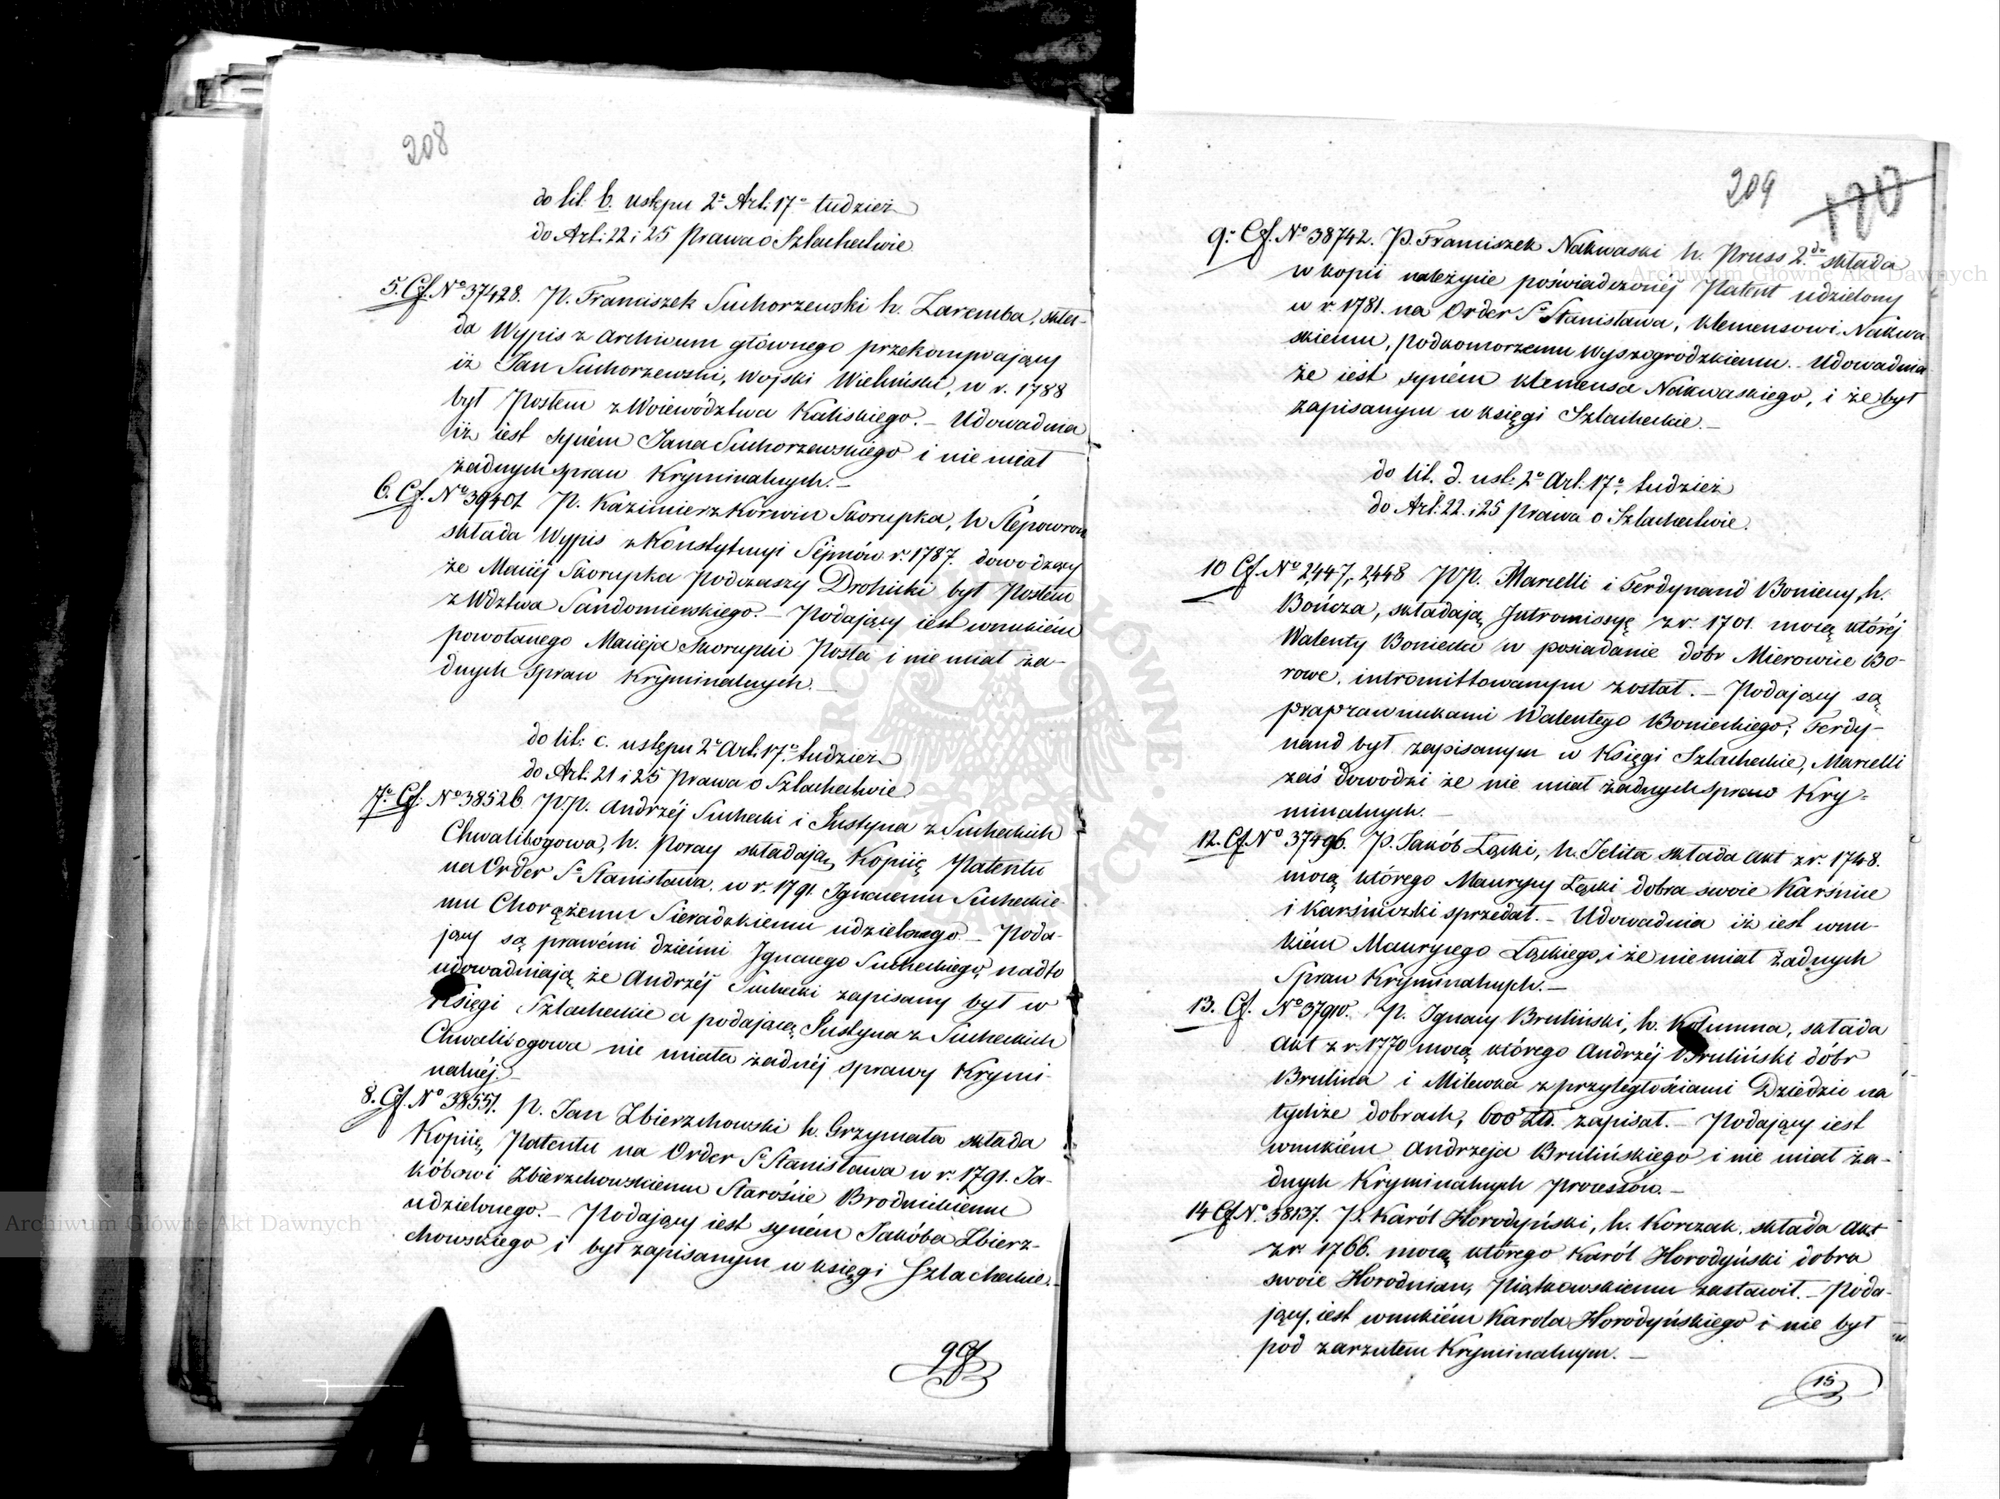 208
do lit. b. ustępu 2º Art. 17º tudzież
do Art: 22 i 25 Prawa o Szlachectwie
5. Cf. Nº 37428. P. Franciszek Suchorzewski h. Zaremba, skła-
da Wypis z Archiwum głównego przekonywający
iż Jan Suchorzewski, Wojski Wieluński, w r. 1788
był Posłem z Województwa Kaliskiego. – Udowadnia
iż iest syném Jana Suchorzewskiego i nie miał
żadnych spraw Kryminalnych. –
6. Cf. Nº 39401 P. Kazimierz Korwin Skorupka, h Slepowron
składa Wypis z Konstytucyi Sejmów r. 1787. dowodzący
że Maciéj Skorupka Podczaszy Drohicki był Posłem
z Wdztwa Sandomierskiego. – Podający iest wnukiém
powołanego Macieja Skorupki Posła i nie miał ża-
dnych spraw Kryminalnych. –
do lit: c. ustępu 2º Art: 17º tudzież
do Art: 21 i 25 Prawa o Szlachectwie
7º Cf. Nº 38526. P.P. Andrzéj Suchecki i Justyna z Sucheckich
Chwalibogowa, h. Poray składają Kopiię Patentu
na Order Sº Stanisława, w r. 1791 Ignacemu Sucheckie-
mu Chorążemu Sieradzkiemu udzielonego. – Poda-
jący są prawémi dziećmi Ignacego Sucheckiego, nadto
udowadniają że Andrzéj Suchecki zapisany był w
Księgi Szlacheckie a podająca Justyna z Sucheckich
Chwalibogowa nie miała żadnéj sprawy Krymi-
nalnéj –
8. Cf. Nº 38551. P. Jan Zbierzchowski h. Grzymała składa
Kopiię Patentu na Order Sº Stanisława w r. 1791. Ja-
kóbowi Zbierzchowskiemu Staroście Brodnickiemu
udzielonego. – Podający iest syném Jakóba Zbierz-
chowskiego i był zapisanym w księgi Szlacheckie. –
9 Cf
209
180
9º Cf. Nº 38742. P. Franciszek Nakwaski h. Pruss 2do składa
w kopii należycie poświadczonéj Patent udzielony
w r. 1781. na Order Sº Stanisława, Klemensowi Nakwa
skiemu, Podkomorzemu Wyszogrodzkiemu. – Udowadnia
że iest syném Klemensa Nakwaskiego, i że był
zapisanym w księgi Szlacheckie. –
do lit. d. ust: 2º Art. 17º, tudzież
do Art. 22. i 25 Prawa o Szlachectwie.
10 Cf. Nº 2,447, 2,448 P.P. Marcelli i Ferdynand Bonieccy, h.
Bończa, składają Jntromissyę z r. 1701. mocą któréj
Walenty Boniecki w posiadanie dóbr Mierowice Bo-
rowe, intromittowanym został. – Podający są
praprawnukami Walentego Bonieckiego; Ferdy-
nand był zapisanym w Księgi Szlacheckie, Marcelli
zaś dowodzi że nie miał żadnych spraw Kry-
minalnych. –
12. Cf. Nº 37496. P. Jakób Łącki, h. Jelita składa Akt z r. 1748.
mocą którego Maurycy Łącki dobra swoie Karśnice
i Karśniczki sprzedał. – Udowadnia iż iest wnu-
kiém Maurycego Łąckiego, i że nie miał żadnych
Spraw Kryminalnych. –
13. Cf. Nº 37910. P. Ignacy Bruliński, h. Kolumna, składa
Akt z r. 1770 mocą którego Andrzéj Bruliński dóbr
Brulina i Milewka z przyległościami Dziedzic na
tychże dobrach, 600 Złt. zapisał. – Podający iest
wnukiém Andrzeja Brulińskiego i nie miał ża-
dnych Kryminalnych Processów. –
14 Cf. Nº 38137. P. Karól Horodyński, h. Korczak, składa Akt
z r. 1766. mocą którego Karól Horodyński dobra
swoie Horodniany Piątkowskiemu zastawił. – Poda-
jący, iest wnukiém Karola Horodyńskiego i nie był
pod zarzutem Kryminalnym. –
15
Archiwum Główne Akt Dawnych
Archiwum Główne Akt Dawnych